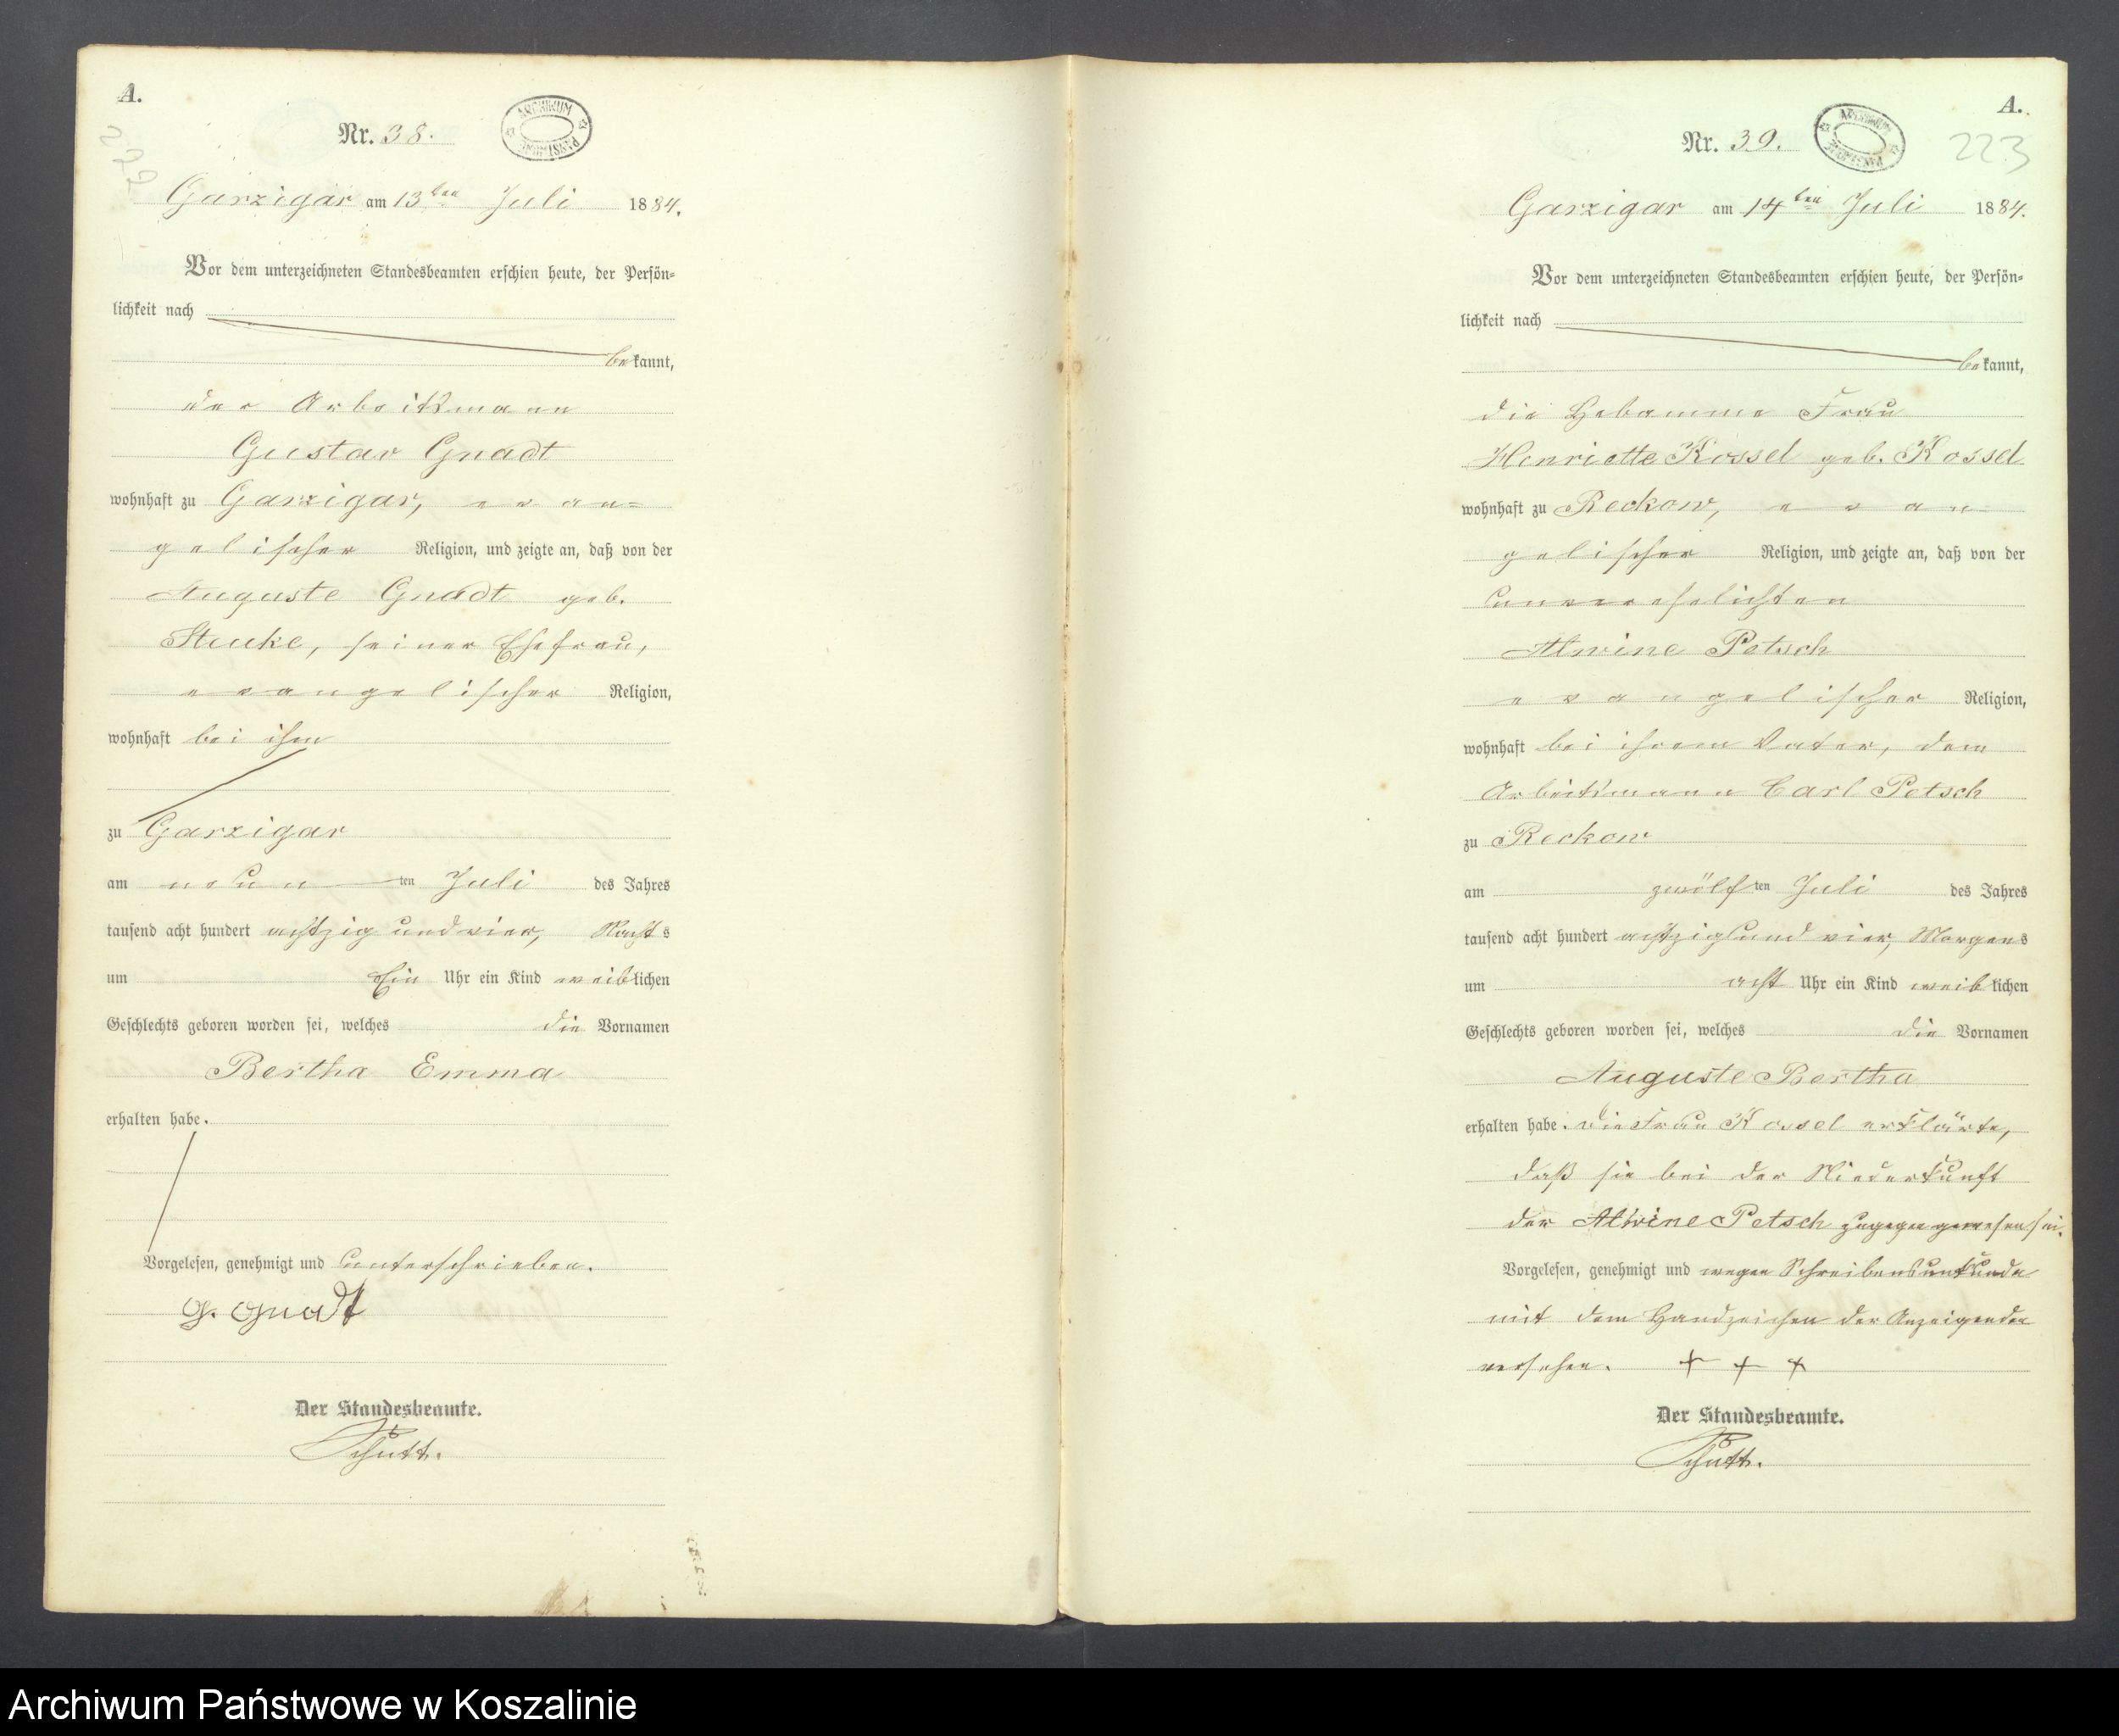 A.
Nr. 38.
ARCHIWUM PAŃSTWOWE
Garzigar am 13ten Juli 1884.
Vor dem unterzeichneten Standesbeamten erschien heute, der Persön-
lichkeit nach
bekannt,
der Arbeitsmann
Gustav Gnadt
wohnhaft zu Garzigar, evan-
gelischer Religion, und zeigte an, daß von der
Auguste Gnadt geb.
Steuke, seiner Ehefrau,
evangelischer Religion,
wohnhaft bei ihm
zu Garzigar
am neun ten Juli des Jahres
tausend acht hundert achtzig und vier, Nachts
um Ein Uhr ein Kind weiblichen
Geschlechts geboren worden sei, welches die Vornamen
Bertha Emma
erhalten habe.
Vorgelesen, genehmigt und unterschrieben.
G. Gnadt
Der Standesbeamte.
Schutt.
A.
Nr. 39.
ARCHIWUM PAŃSTWOWE
223
Garzigar am 14ten Juli 1884.
Vor dem unterzeichneten Standesbeamten erschien heute, der Persön-
lichkeit nach
bekannt,
die Hebamme Frau
Henriette Kossel geb. Kossel
wohnhaft zu Reckow, evan
gelischer Religion, und zeigte an, daß von der
unverehelichten
Alwine Petsch
evangelischer Religion,
wohnhaft bei ihrem Vater, dem
Arbeitsmann Carl Petsch
zu Reckow
am zwölf ten Juli des Jahres
tausend acht hundert achtzig und vier, Morgens
um acht Uhr ein Kind weiblichen
Geschlechts geboren worden sei, welches die Vornamen
Auguste Bertha
erhalten habe. Die Frau Kossel erklärte,
daß sie bei der Niederkunft
der Alwine Petsch zugegen gewesen sei.
Vorgelesen, genehmigt und wegen Schreibensunkunde
mit dem Handzeichen der Anzeigenden
versehen. + + +
Der Standesbeamte.
Schutt.
Archiwum Państwowe w Koszalinie